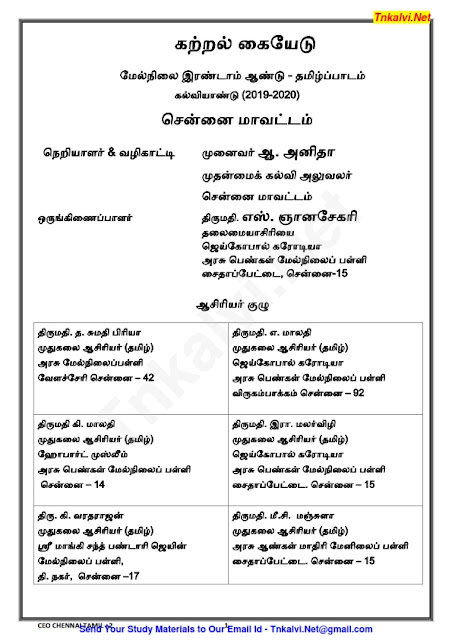 Tnkalvi.Net
கற்றல் கையேடு
மேல்நிலை இரண்டாம் ஆண்டு - தமிழ்ப்பாடம்
கல்வியாண்டு (2019-2020)
சென்னை மாவட்டம்
நெறியாளர் & வழிகாட்டி
முனைவர் ஆ. அனிதா
முதன்மைக் கல்வி அலுவலர்
சென்னை மாவட்டம்
ஒருங்கிணைப்பாளர்
திருமதி. எஸ். ஞானசேகரி
தலைமையாசிரியை
ஜெய்கோபால் கரோடியா
அரசு பெண்கள் மேல்நிலைப் பள்ளி
சைதாப்பேட்டை, சென்னை-15
ஆசிரியர் குழு
திருமதி. த. சுமதி பிரியா
முதுகலை ஆசிரியர் (தமிழ்)
அரசு மேல்நிலைப்பள்ளி
வேளச்சேரி சென்னை – 42
திருமதி. எ. மாலதி
முதுகலை ஆசிரியர் (தமிழ்)
ஜெய்கோபால் கரோடியா
அரசு பெண்கள் மேல்நிலைப் பள்ளி
விருகம்பாக்கம் சென்னை – 92
திருமதி கி. மாலதி
முதுகலை ஆசிரியர் (தமிழ்)
ஹோபார்ட் முஸ்லீம்
அரசு பெண்கள் மேல்நிலைப் பள்ளி
சென்னை – 14
திருமதி. இரா. மலர்விழி
முதுகலை ஆசிரியர் (தமிழ்)
ஜெய்கோபால் கரோடியா
அரசு பெண்கள் மேல்நிலைப் பள்ளி
சைதாப்பேட்டை. சென்னை – 15
திரு. கி. வரதராஜன்
முதுகலை ஆசிரியர் (தமிழ்)
ஸ்ரீ மாங்கி சந்த் பண்டாரி ஜெயின்
மேல்நிலைப் பள்ளி,
தி. நகர், சென்னை –17
திருமதி. மீ.சி. மஞ்சுளா
முதுகலை ஆசிரியர் (தமிழ்)
அரசு ஆண்கள் மாதிரி மேனிலைப் பள்ளி
சைதாப்பேட்டை. சென்னை – 15
Tnkalvi.Net
CEO CHENNAI TAMIL +2
1
Send Your Study Materials to Our Email Id - Tnkalvi.Net@gmail.com